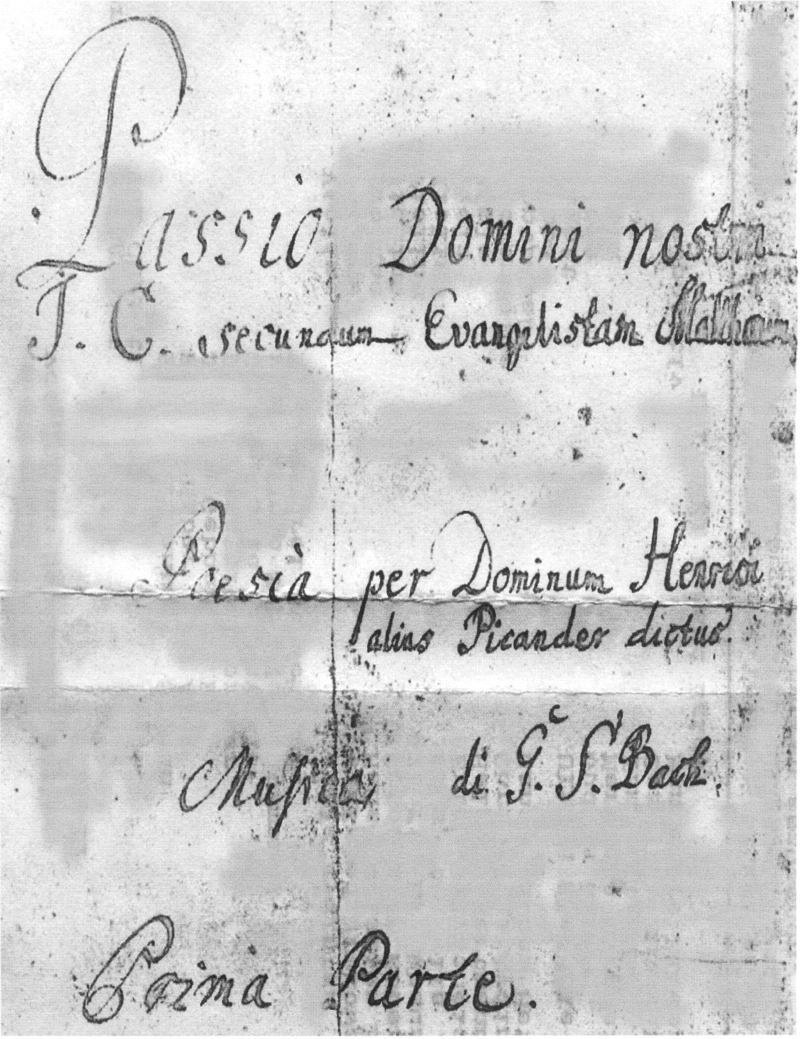 Passio Domini nostri
J. C. secundum Evangelistam Matthæum
Poesia per Dominum Henrici
alias Picander dictus.
Musica di G. S. Bach.
Prima Parte.